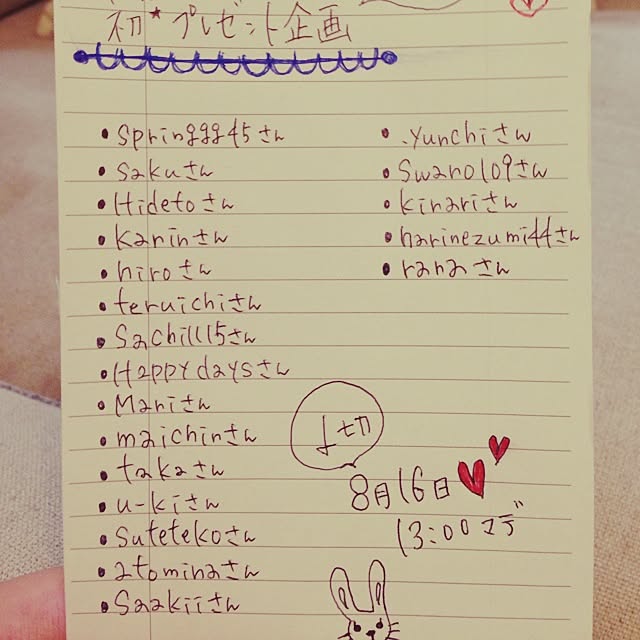 初*プレゼント企画
• springgg45さん
• sakuさん
• Hidetoさん
• Karinさん
• hiroさん
• teruichiさん
• Sachill15さん
• Happydaysさん
• Mariさん
• maichinさん
• takaさん
• u-kiさん
• Sutetekoさん
• atominaさん
• Saakiiさん
• .yunchiさん
• Swaro109さん
• kinariさん
• harinezumi44さん
• ranaさん
〆切
8月16日
13:00マデ